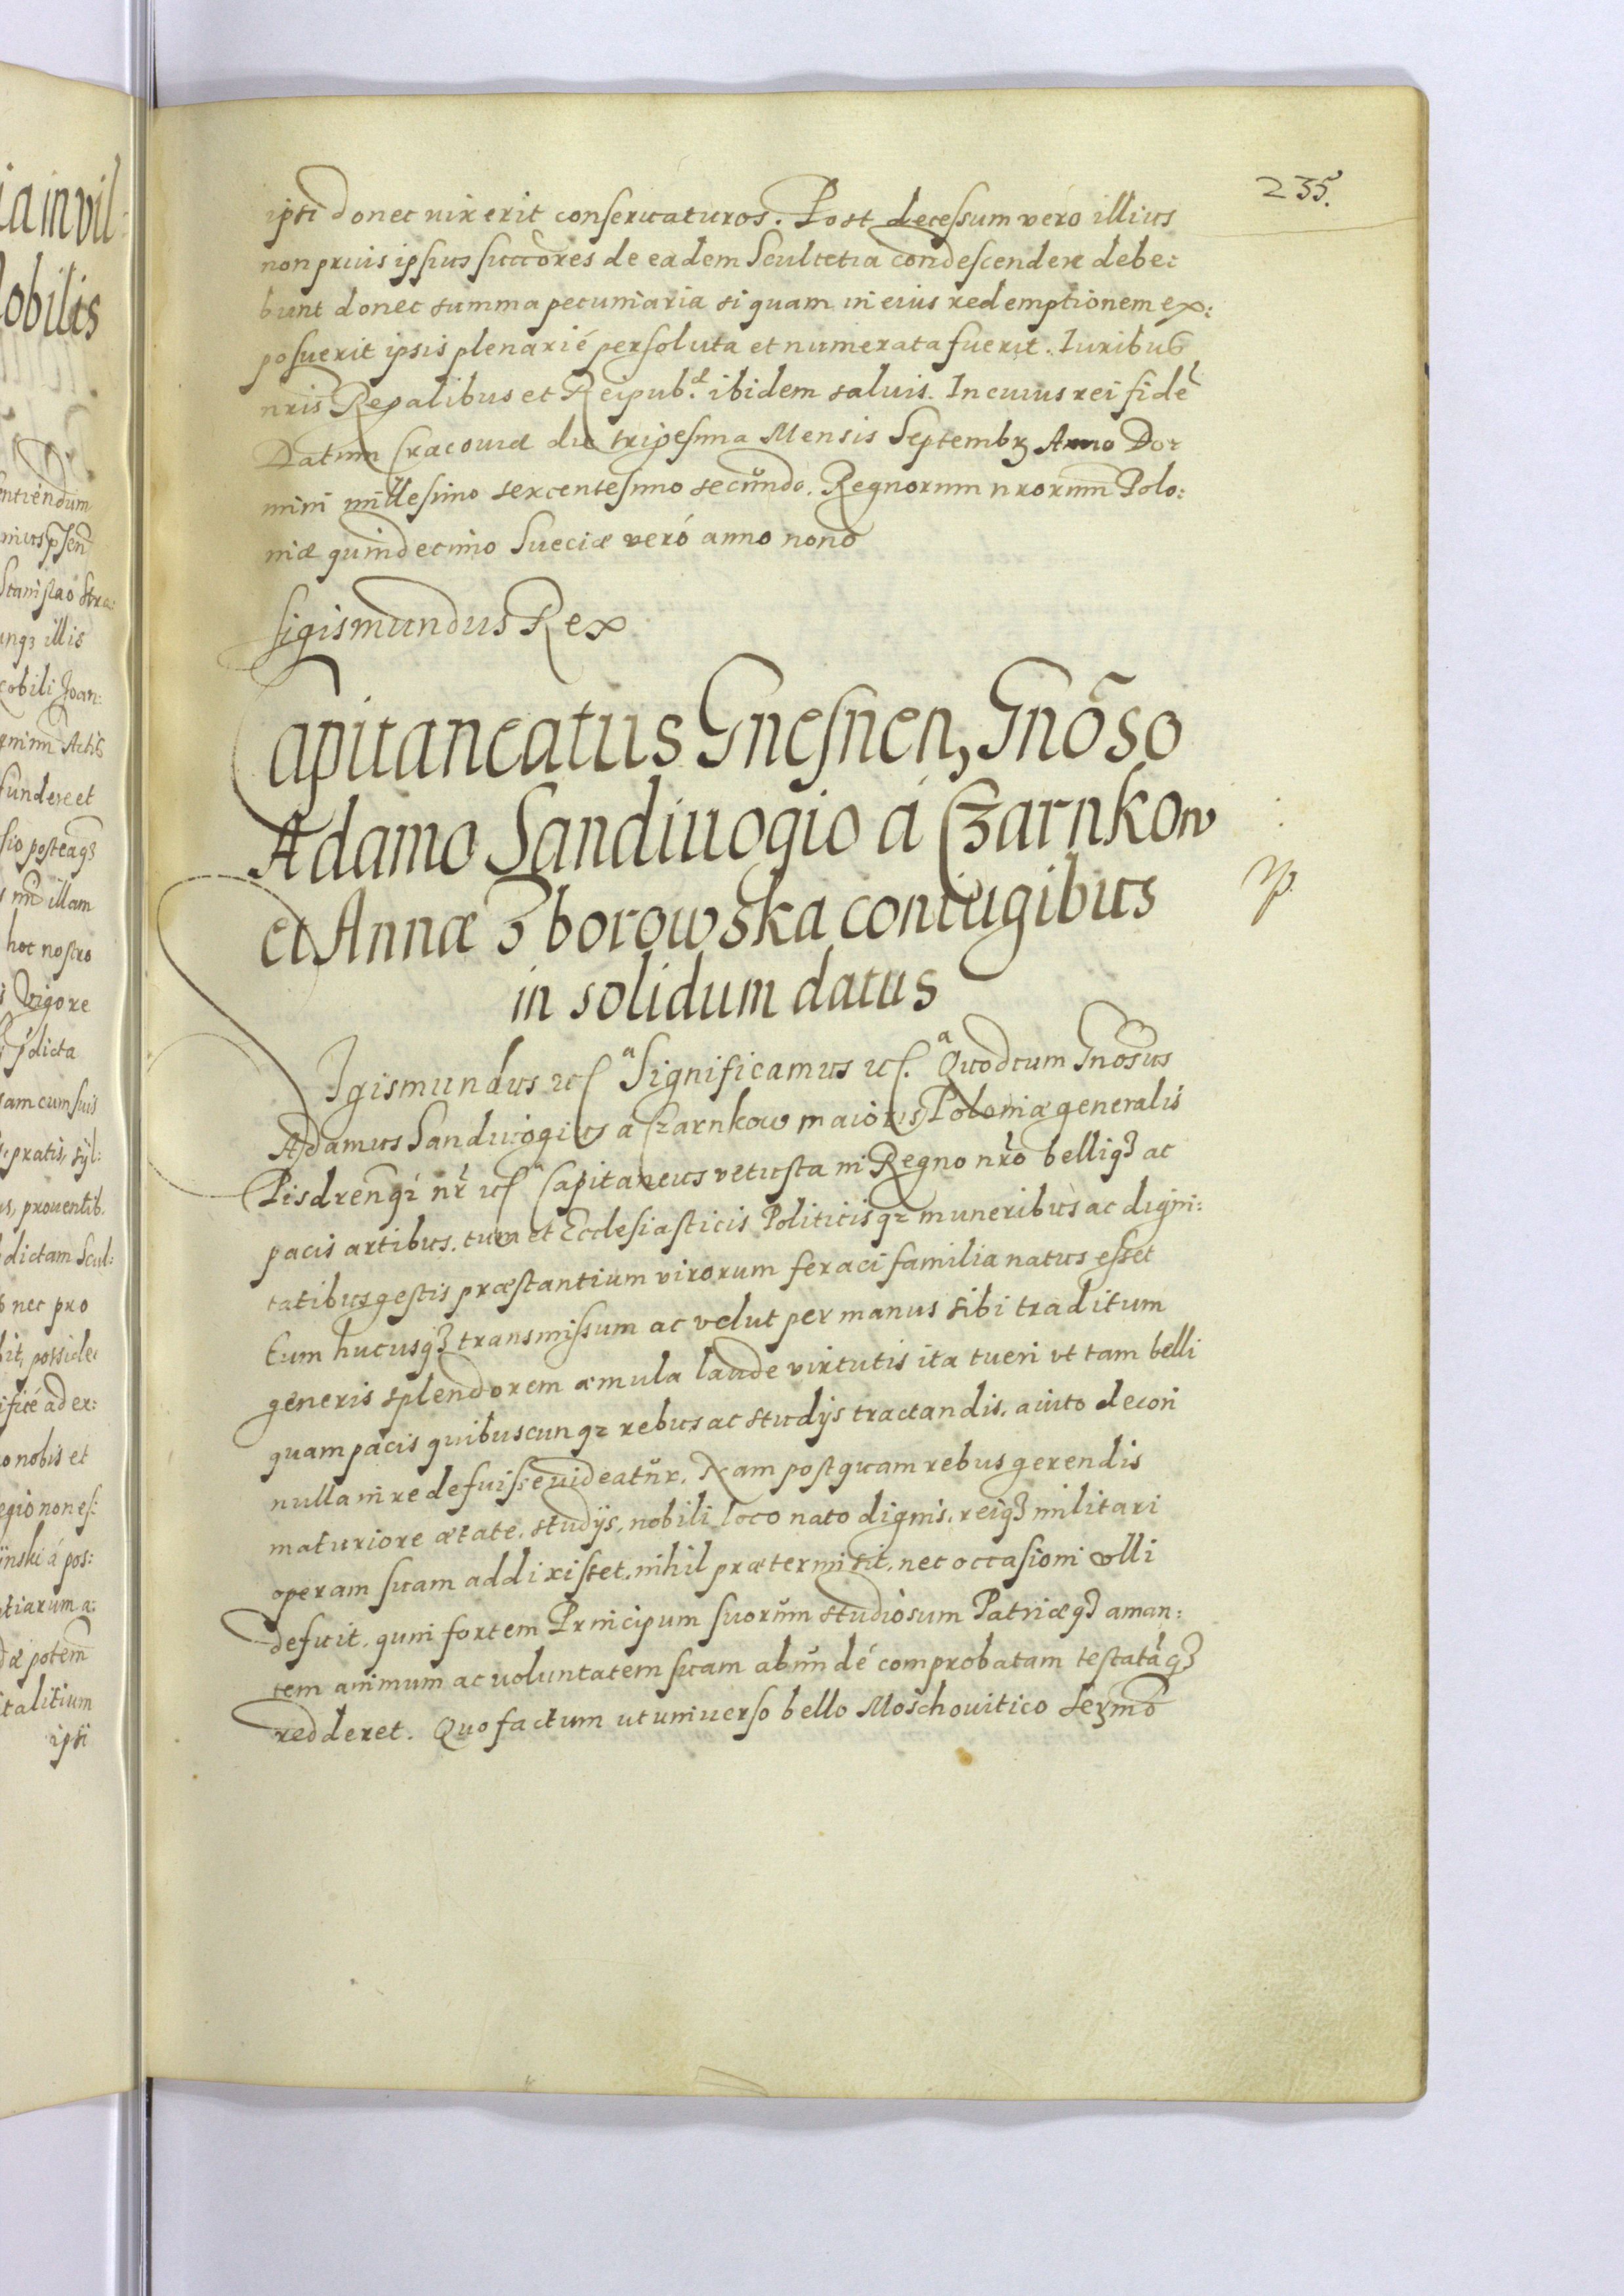 235.
ipsi donec uixerit conseruaturos. Post decessum vero illius
non prius ipsius succōres de eadem Scultetia condescendere debe:
bunt donec summa pecuniaria si quam in eius redemptionem ex:
posuerit ipsis plenarié persoluta et numerata fuerit. Iuribus
nris Regalibus et Reipub. ibidem saluis. In cuius rei fidē
Datum Cracouiæ die trigesima Mensis Septembꝫ Anno Do:
mini millesimo sexcentesimo secundo. Regnorum nrorum Polo:
niæ quindecimo Sueciæ veró anno nono
Sigismundus Rex
Capitaneatus Gnesnen, Gnōso
Adamo Sandiuogio á Czarnkow
et Annæ Zborowska coniugibus
in solidum datus
Sigismundus etc̃ Significamus etc̃. Quod cum Gnosus
Adamus Sandiuogius a Czarnkow maioris Poloniæ generalis
Pisdrenqꝫ nr̃ etc̃ Capitaneus vetusta in Regno nr̃o belliqꝫ ac
pacis artibus. tum et Ecclesiasticis Politicisqꝫ muneribus ac digni:
tatibus gestis præstantium virorum feraci familia natus esset
tum hucusqꝫ transmissum ac velut per manus sibi traditum
generis splendorem æmula laude virtutis ita tueri vt tam belli
quam pacis quibuscunqꝫ rebus ac studijs tractandis. auito decori
nulla in re defuisse uideatur. Nam postquam rebus gerendis
maturiore ætate. studijs, nobili loco nato dignis. reiqꝫ militari
operam suam addixisset. nihil prætermisit. nec occasioni vlli
defuit. quin fortem Principum suorum studiosum Patriæqꝫ aman:
tem animum ac uoluntatem suam abundé comprobatam testatāqꝫ
redderet. Quo factum ut uniuerso bello Moschouitico Serm̃o